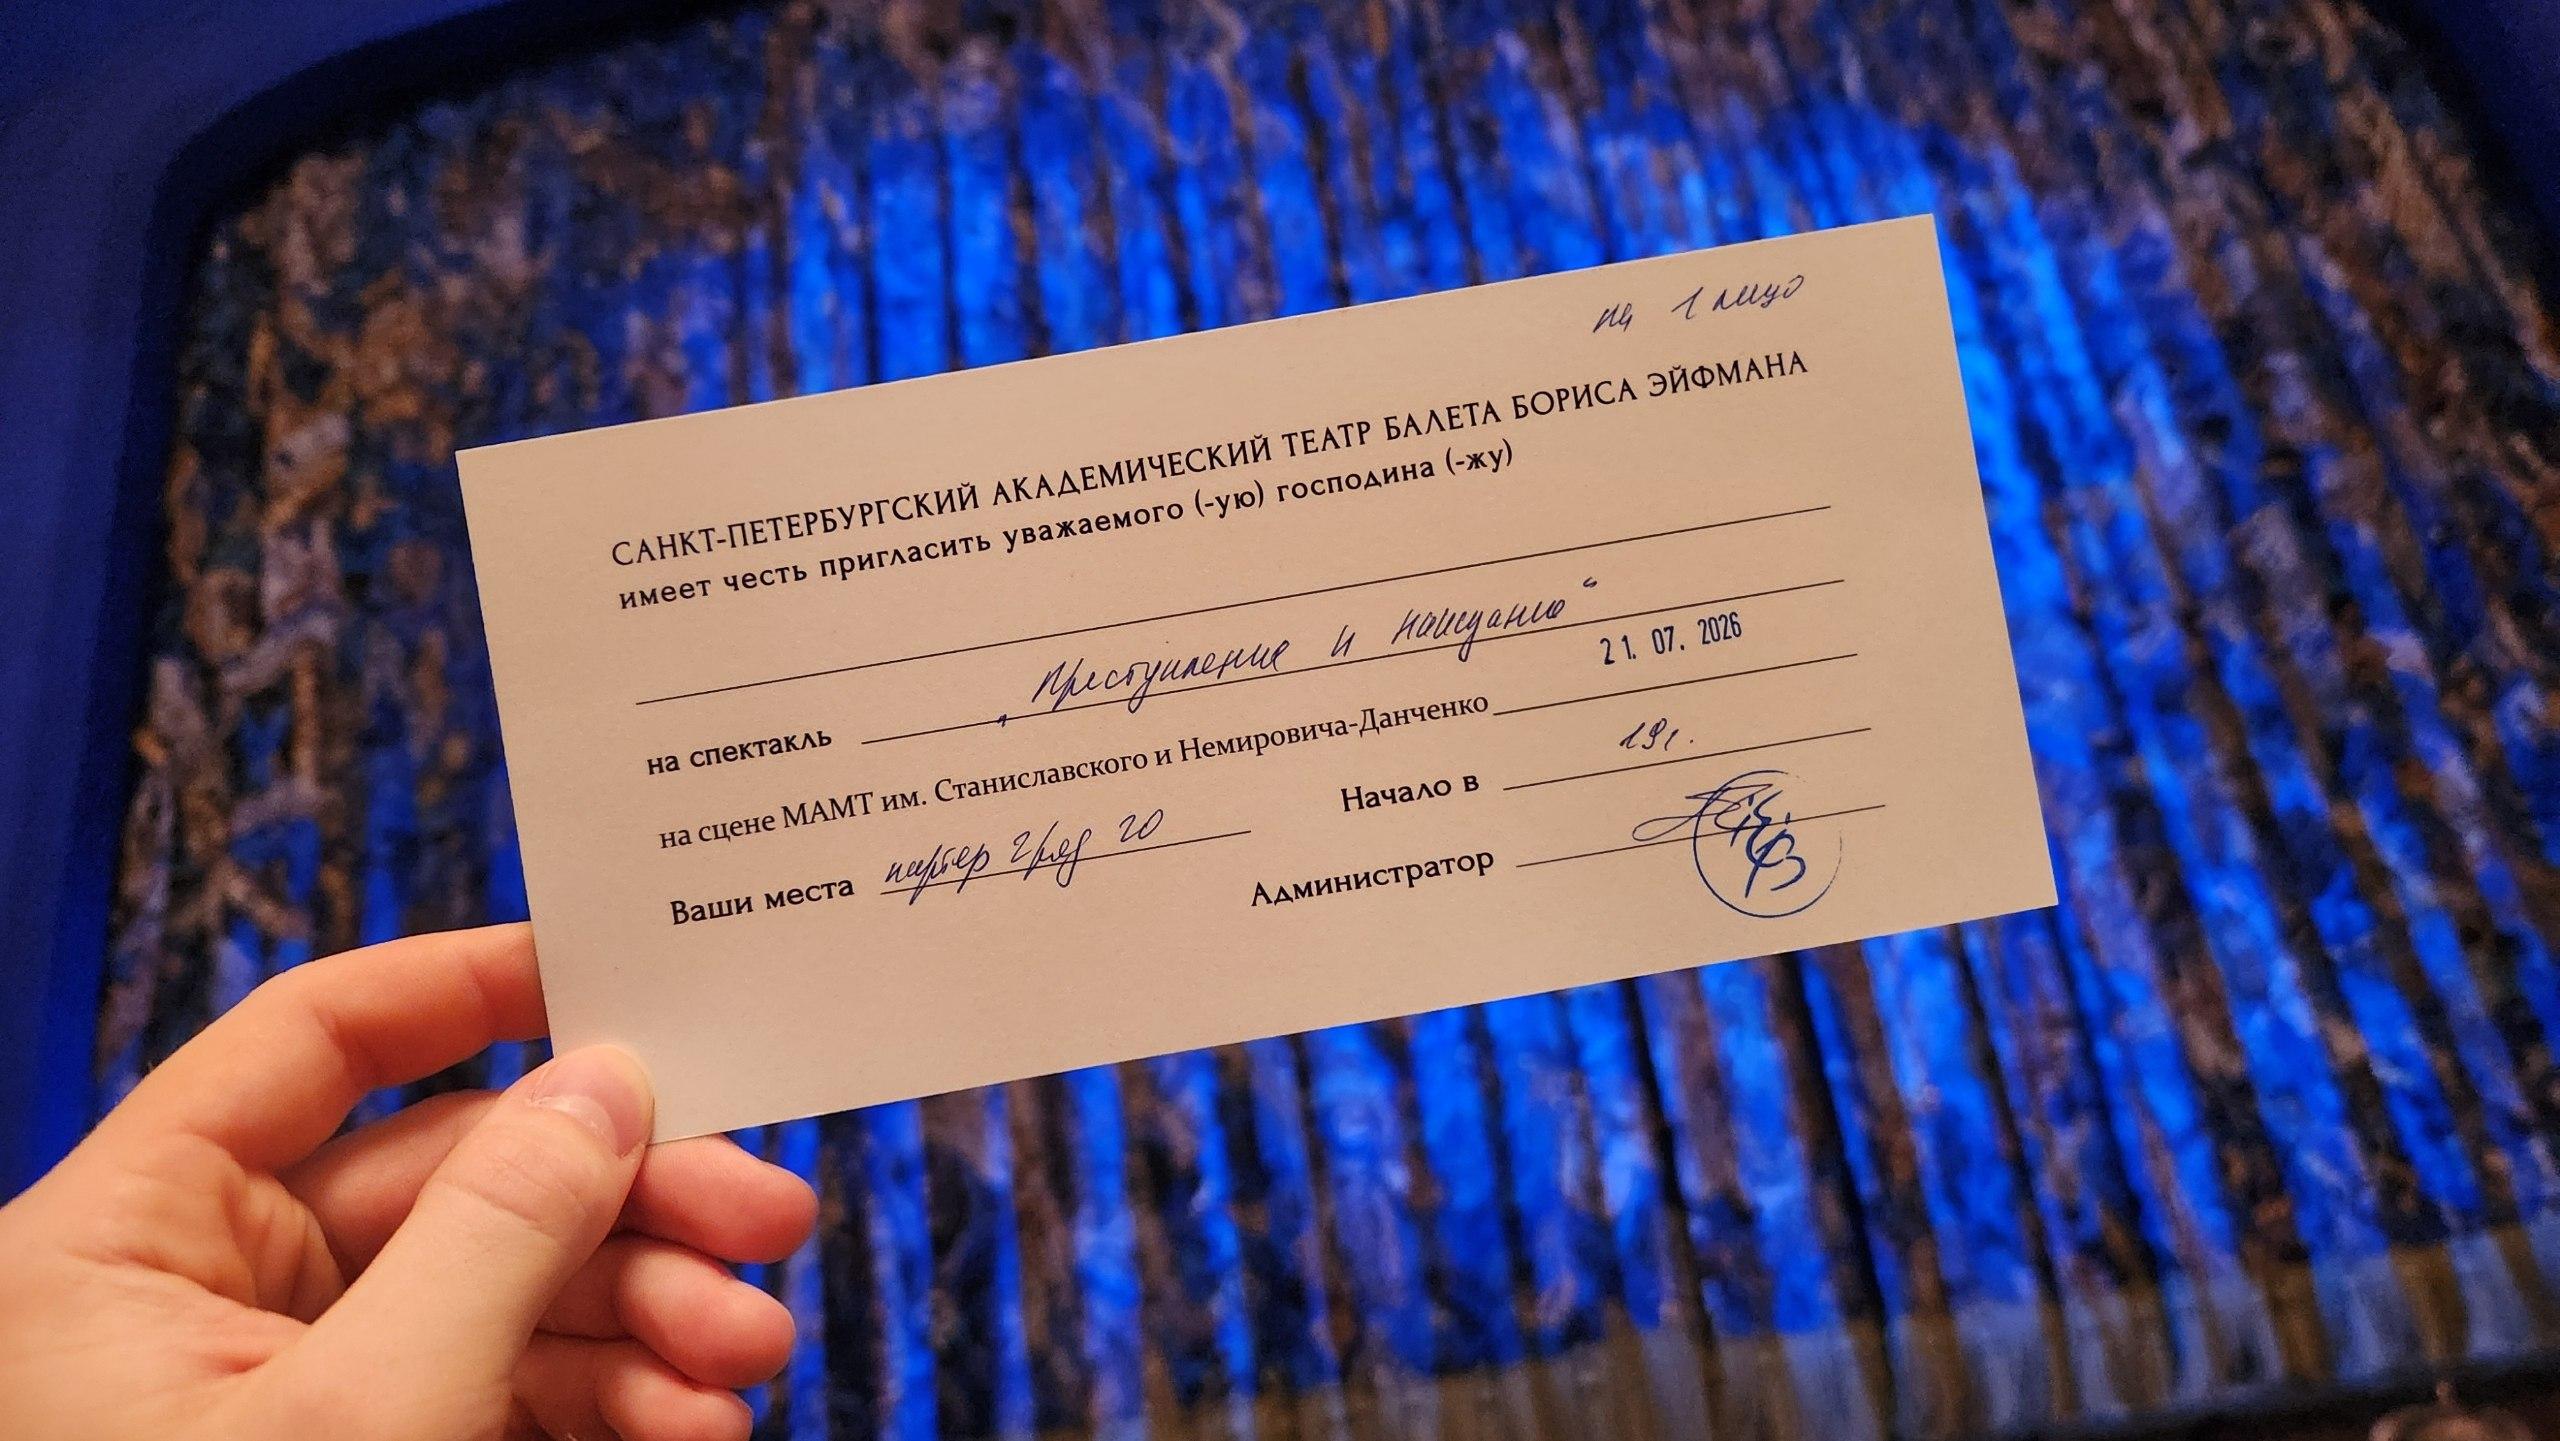 на 1 лицо
САНКТ-ПЕТЕРБУРГСКИЙ АКАДЕМИЧЕСКИЙ ТЕАТР БАЛЕТА БОРИСА ЭЙФМАНА
имеет честь пригласить уважаемого (-ую) господина (-жу)
на спектакль „Преступление и наказание“
21. 07. 2026
на сцене МАМТ им. Станиславского и Немировича-Данченко
Начало в 19г.
Ваши места партер 2 ряд 20
Администратор